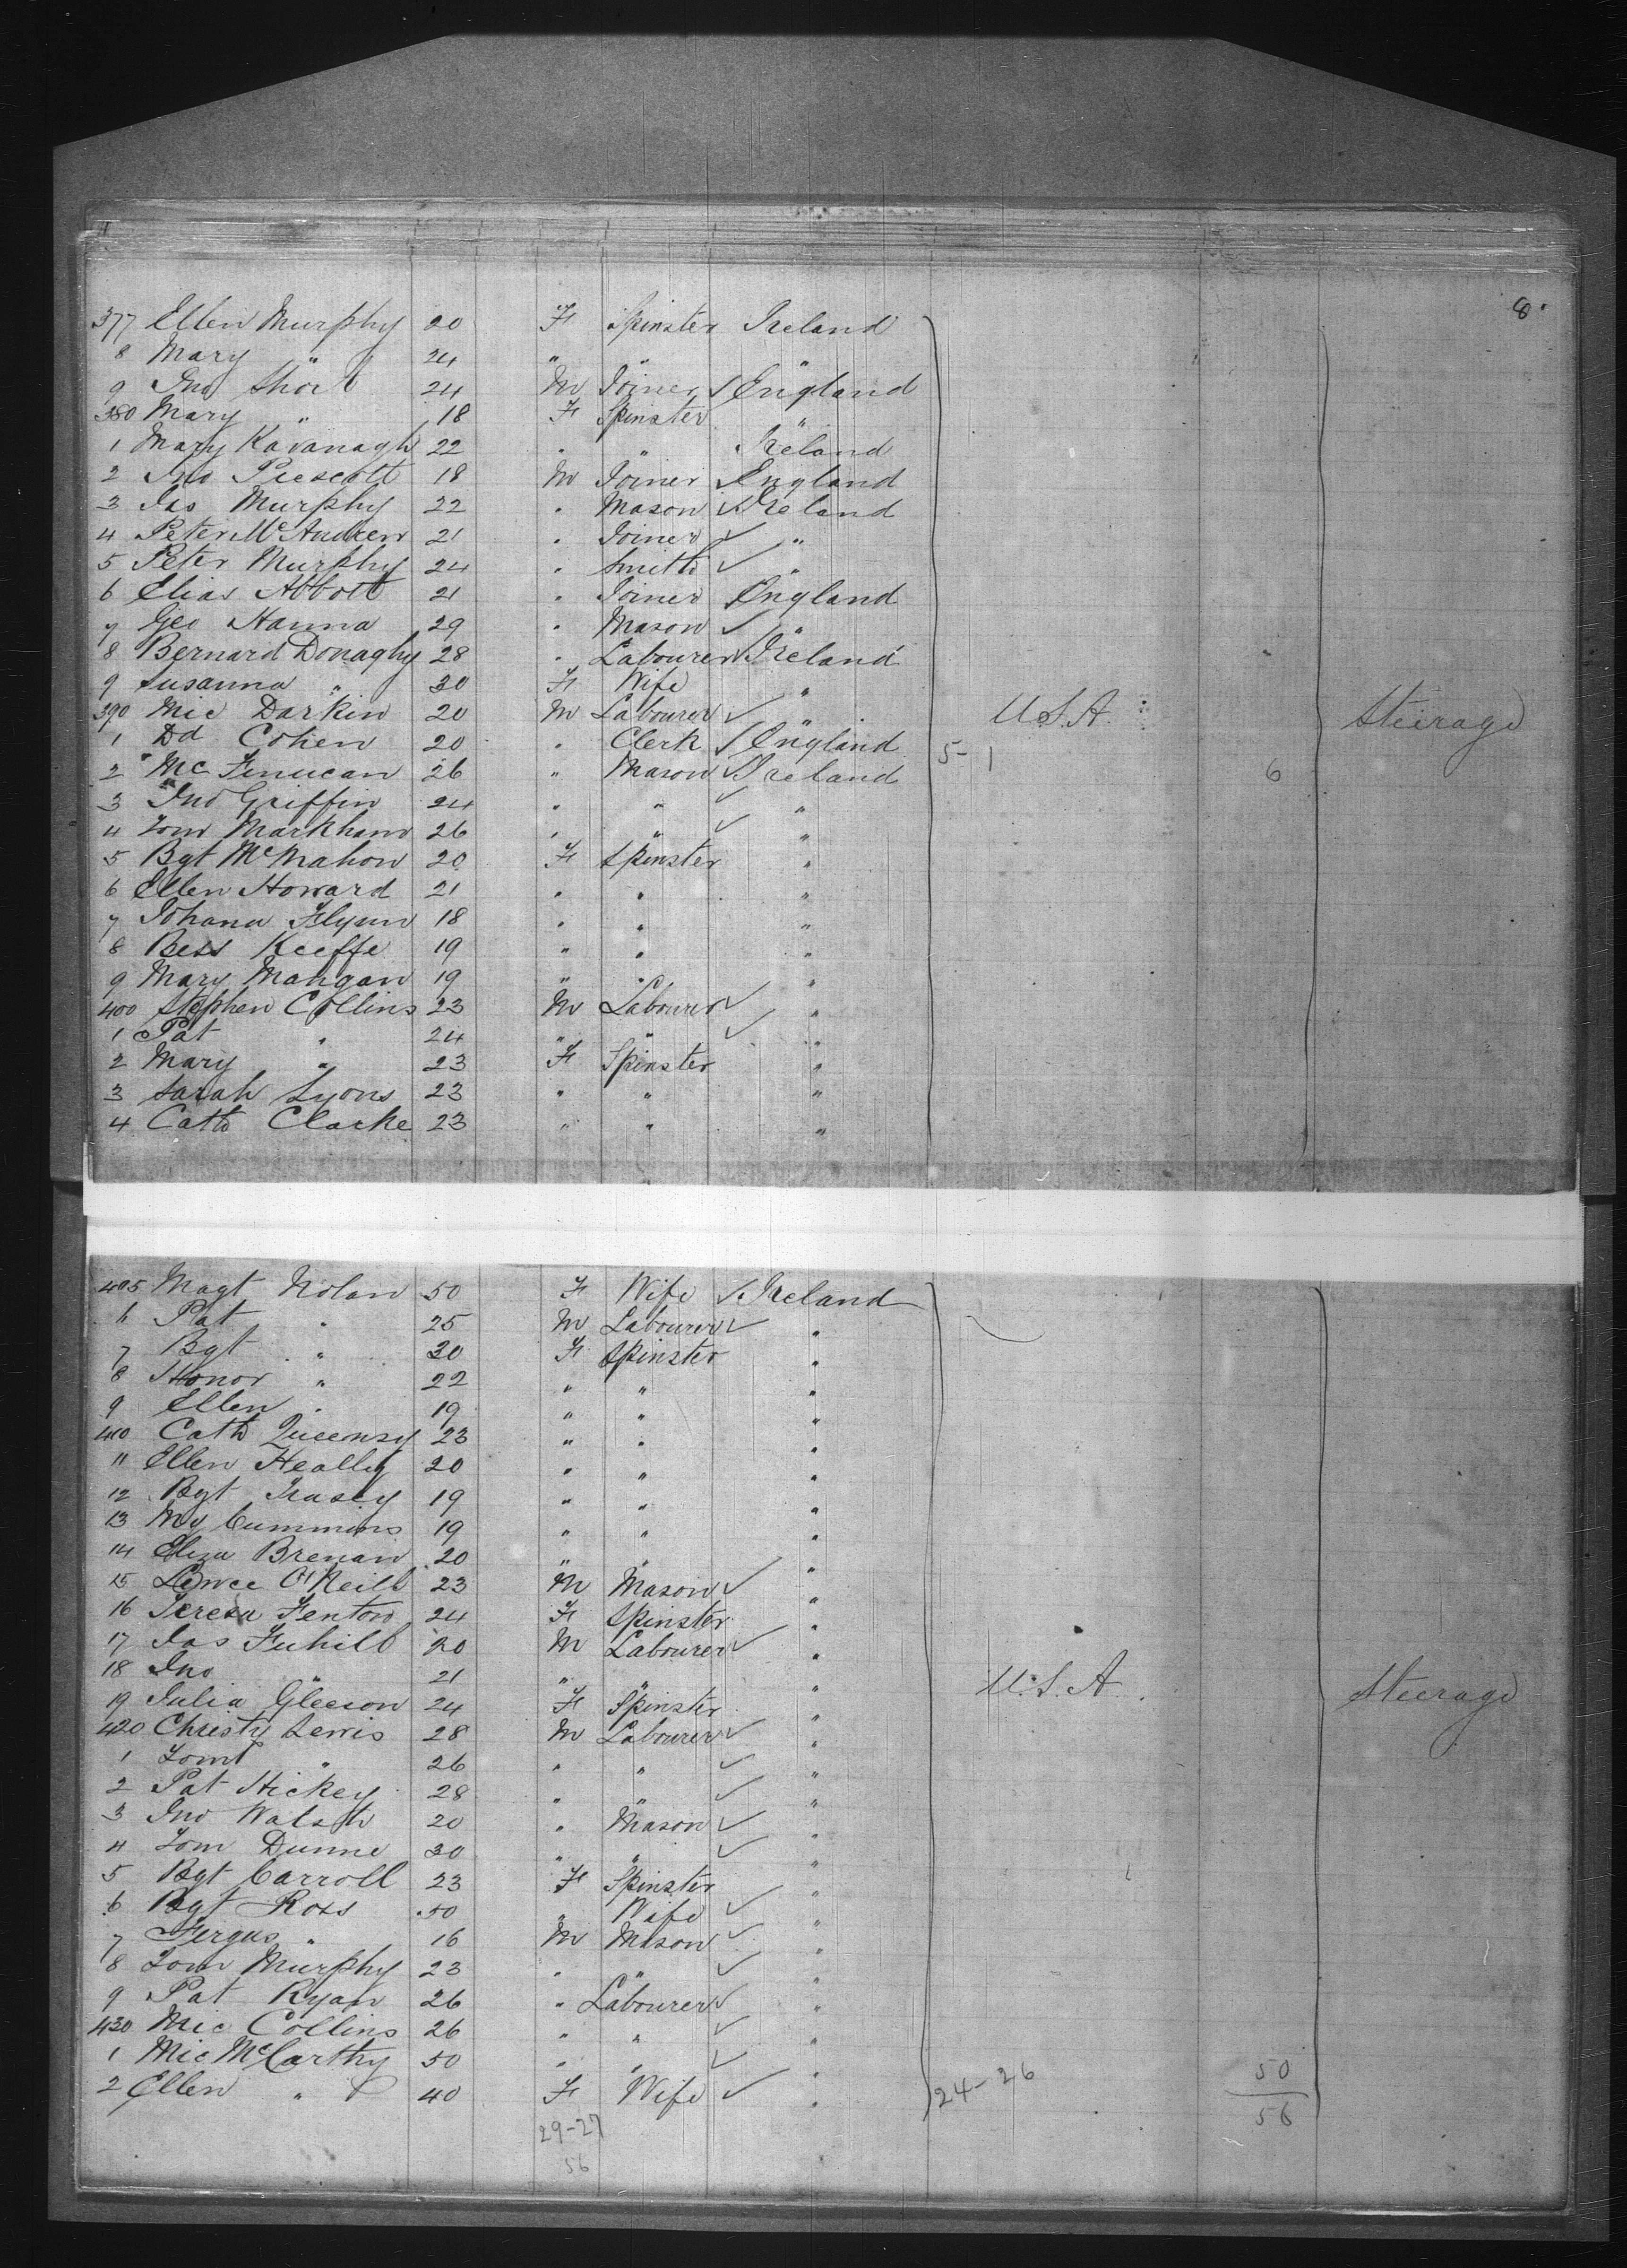 8
377 Ellen Murphy 20 F Spinster Ireland
8 Mary " 24 " " "
9 Jno Short 24 M Joiner ✓ England
380 Mary " 18 F Spinster "
1 Mary Kavanagh 22 " " Ireland
2 Jno Prescott 18 M Joiner ✓ England
3 Jas Murphy 22 " Mason ✓ Ireland
4 Peter McAndrew 21 " Joiner ✓ "
5 Peter Murphy 24 " Smith ✓ "
6 Elias Abbott 21 " Joiner England
7 Geo Hanna 29 " Mason ✓ "
8 Bernard Donaghy 28 " Labourer ✓ Ireland
9 Susanna " 30 F Wife "
390 Mic Darkin 20 M Labourer ✓ " U.S.A. Steerage
1 Dd Cohen 20 " Clerk ✓ England 5-1
2 Mc Finucan 26 " Mason ✓ Ireland 6
3 Jno Griffin 24 " " ✓ "
4 Tom Markham 26 " " ✓ "
5 Bgt McMahon 20 F Spinster "
6 Ellen Howard 21 " " "
7 Johana Flynn 18 " " "
8 Bess Keeffe 19 " " "
9 Mary Mangan 19 " " "
400 Stephen Collins 23 M Labourer ✓ "
1 Pat " 24 " " ✓ "
2 Mary " 23 F Spinster "
3 Sarah Lyons 23 " " "
4 Cath Clarke 23 " " "
405 Magt Nolan 50 F Wife ✓ Ireland
6 Pat " 25 M Labourer ✓ "
7 Bgt " 30 F Spinster "
8 Honor " 22 " " "
9 Ellen " 19 " " "
410 Cath 23 " " "
11 Ellen Heally 20 " " "
12 Bgt Trasey 19 " " "
13 My Cummins 19 " " "
14 Eliza Brenan 20 " " "
15 O'Neill 23 M Mason ✓ "
16 Teresa Fenton 24 F Spinster "
17 Jas Fuhill 20 M Labourer ✓ "
18 Jno " 21 " " "
19 Julia Gleeson 24 F Spinster " U.S.A. Steerage
420 Christy Lewis 28 M Labourer ✓ "
1 " 26 " " ✓ "
2 Pat Hickey 28 " " ✓ "
3 Jno Walsh 20 " Mason ✓ "
4 Tom Dunne 30 " " ✓ "
5 Bgt Carroll 23 F Spinster "
6 Bgt Ross 50 " Wife ✓ "
7 Fergus " 16 M Mason ✓ "
8 Tom Murphy 23 " " ✓ "
9 Pat Ryan 26 " Labourer ✓ "
430 Mic Collins 26 " " ✓ "
1 Mic McCarthy 50 " " ✓ "
2 Ellen " 40 F Wife ✓ " 24-26 50
56
29-27
56